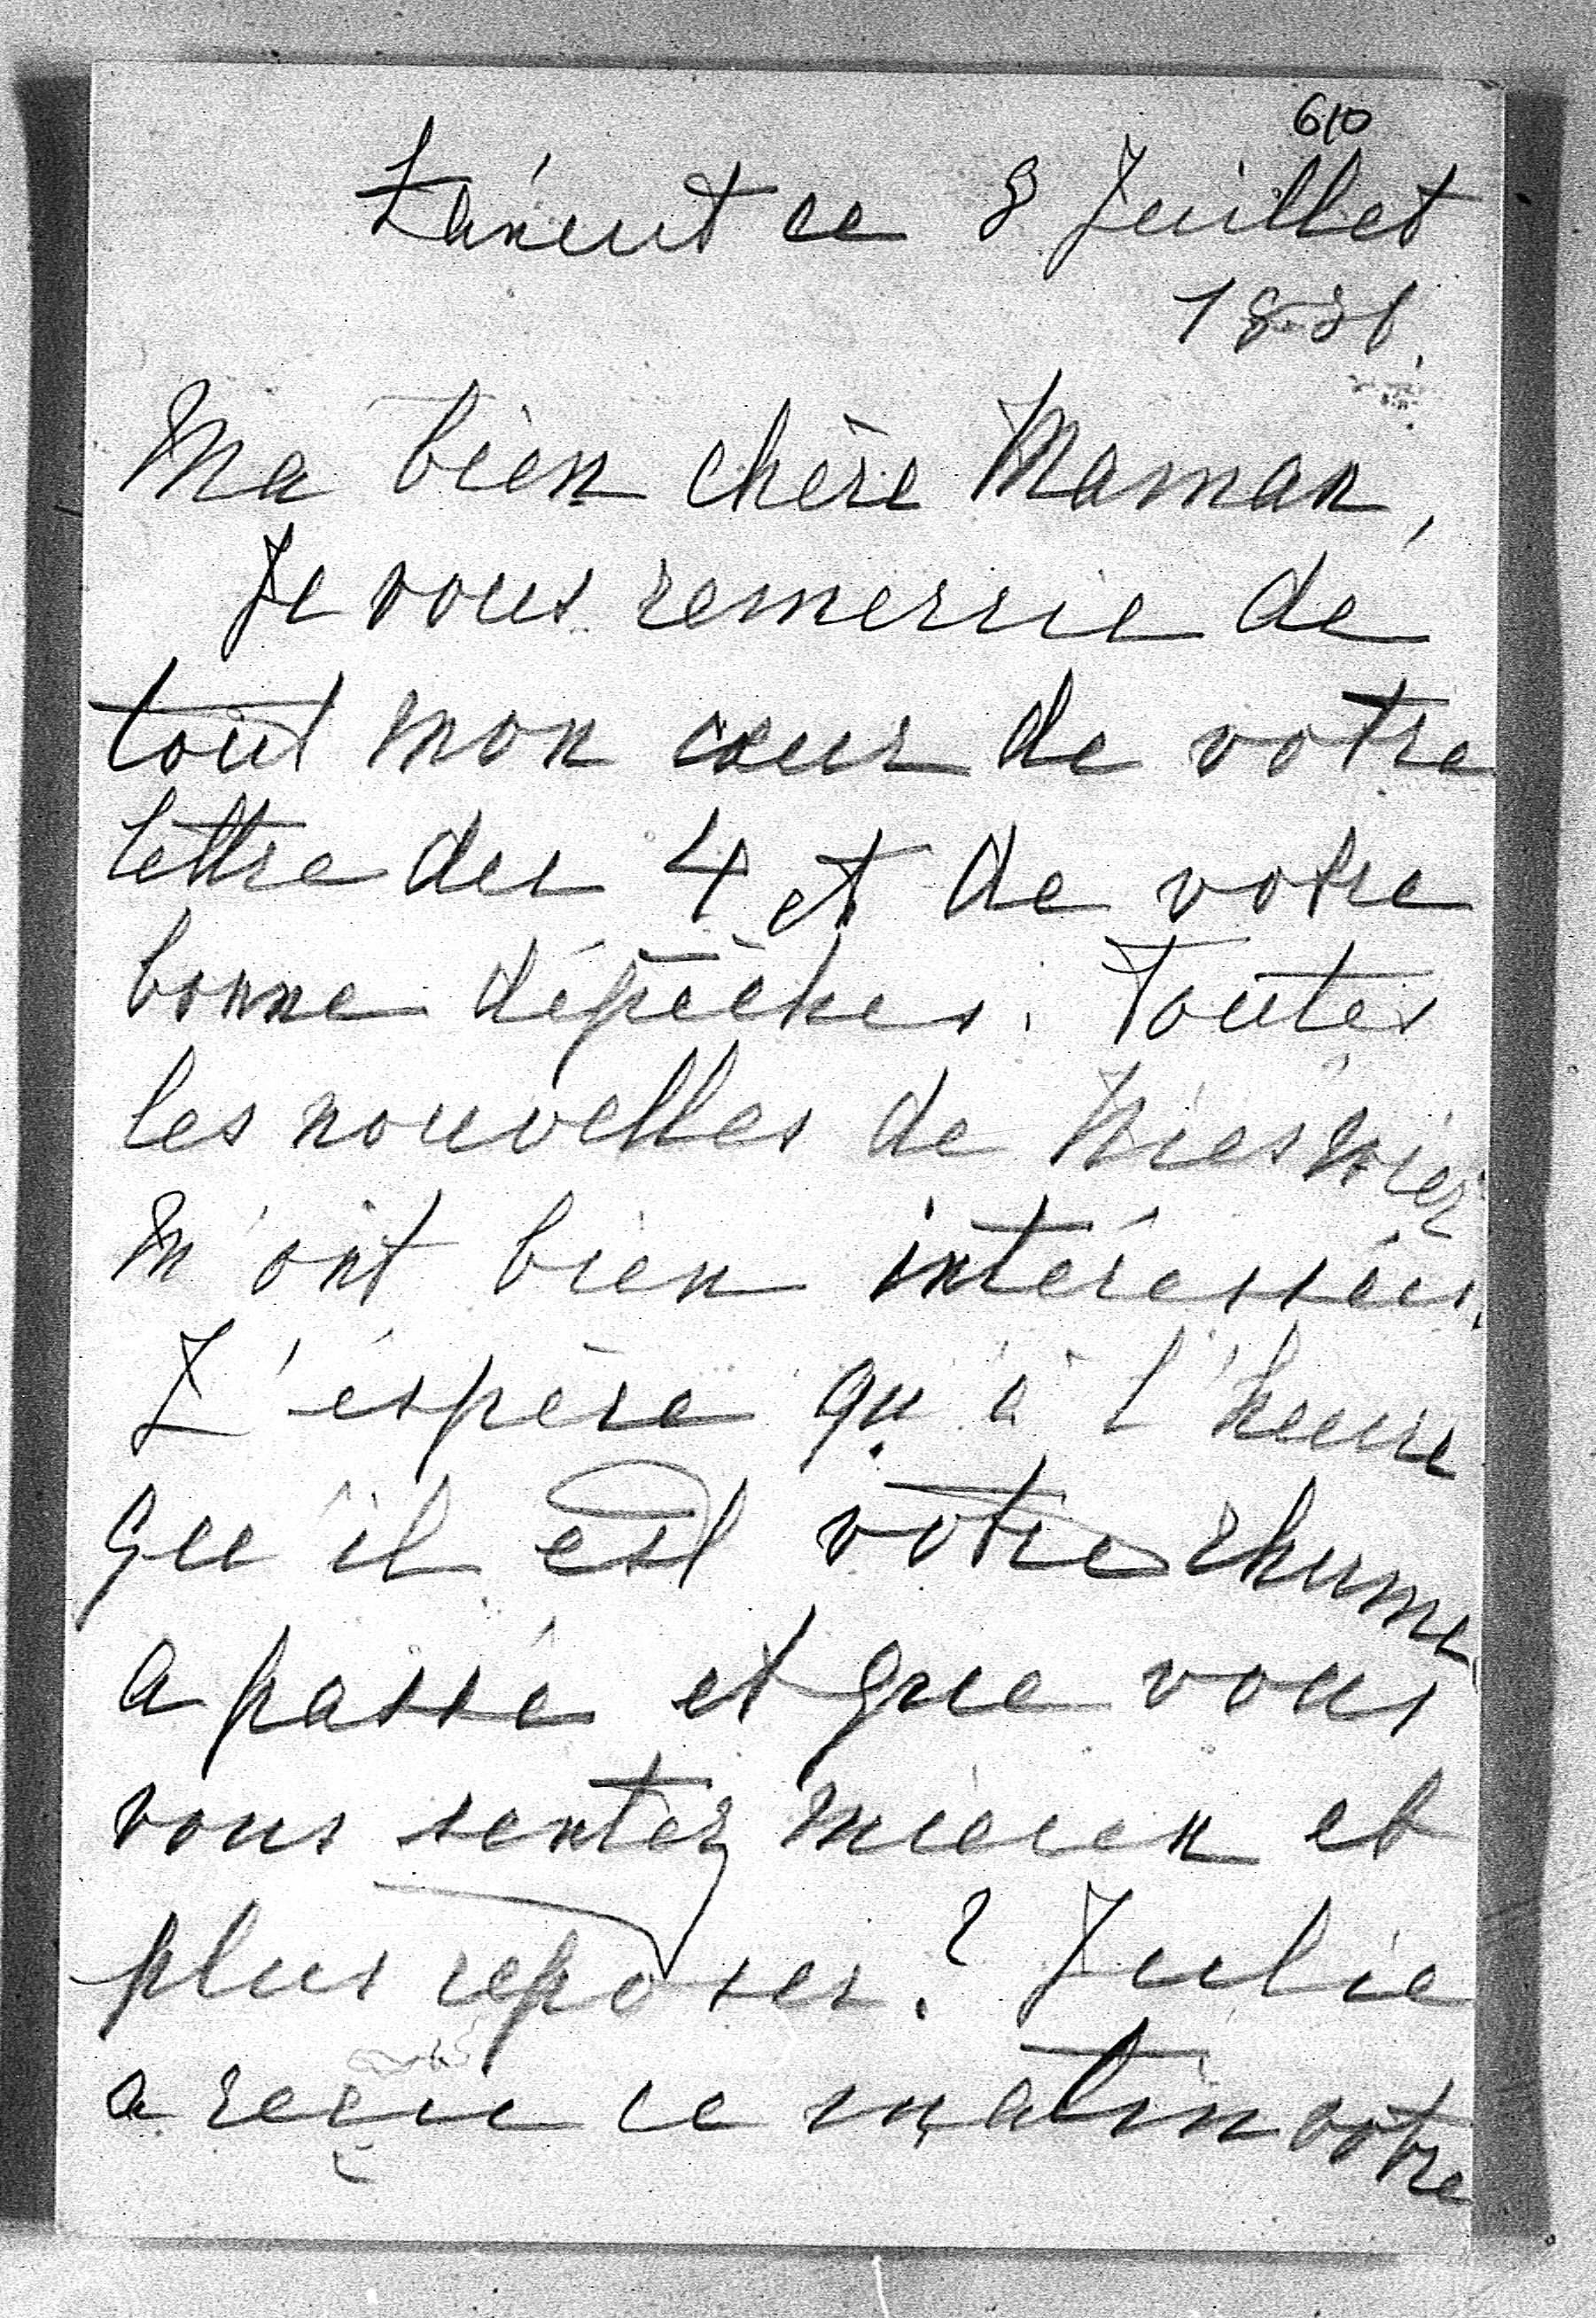 610
Łańcut ce 8 Juillet
1886.
Ma bien chère Maman,
Je vous remercie de
tout mon cœur de votre
lettre du 4 et de votre
bonne dépêches. Toutes
les nouvelles de Nieśwież
m'ont bien intéressées.
J'espère qu'à l'heure
qu'il est votre rhume
a passé et que vous
vous sentez mieux et
plus reposer? Julie
a reçu ce matin votre